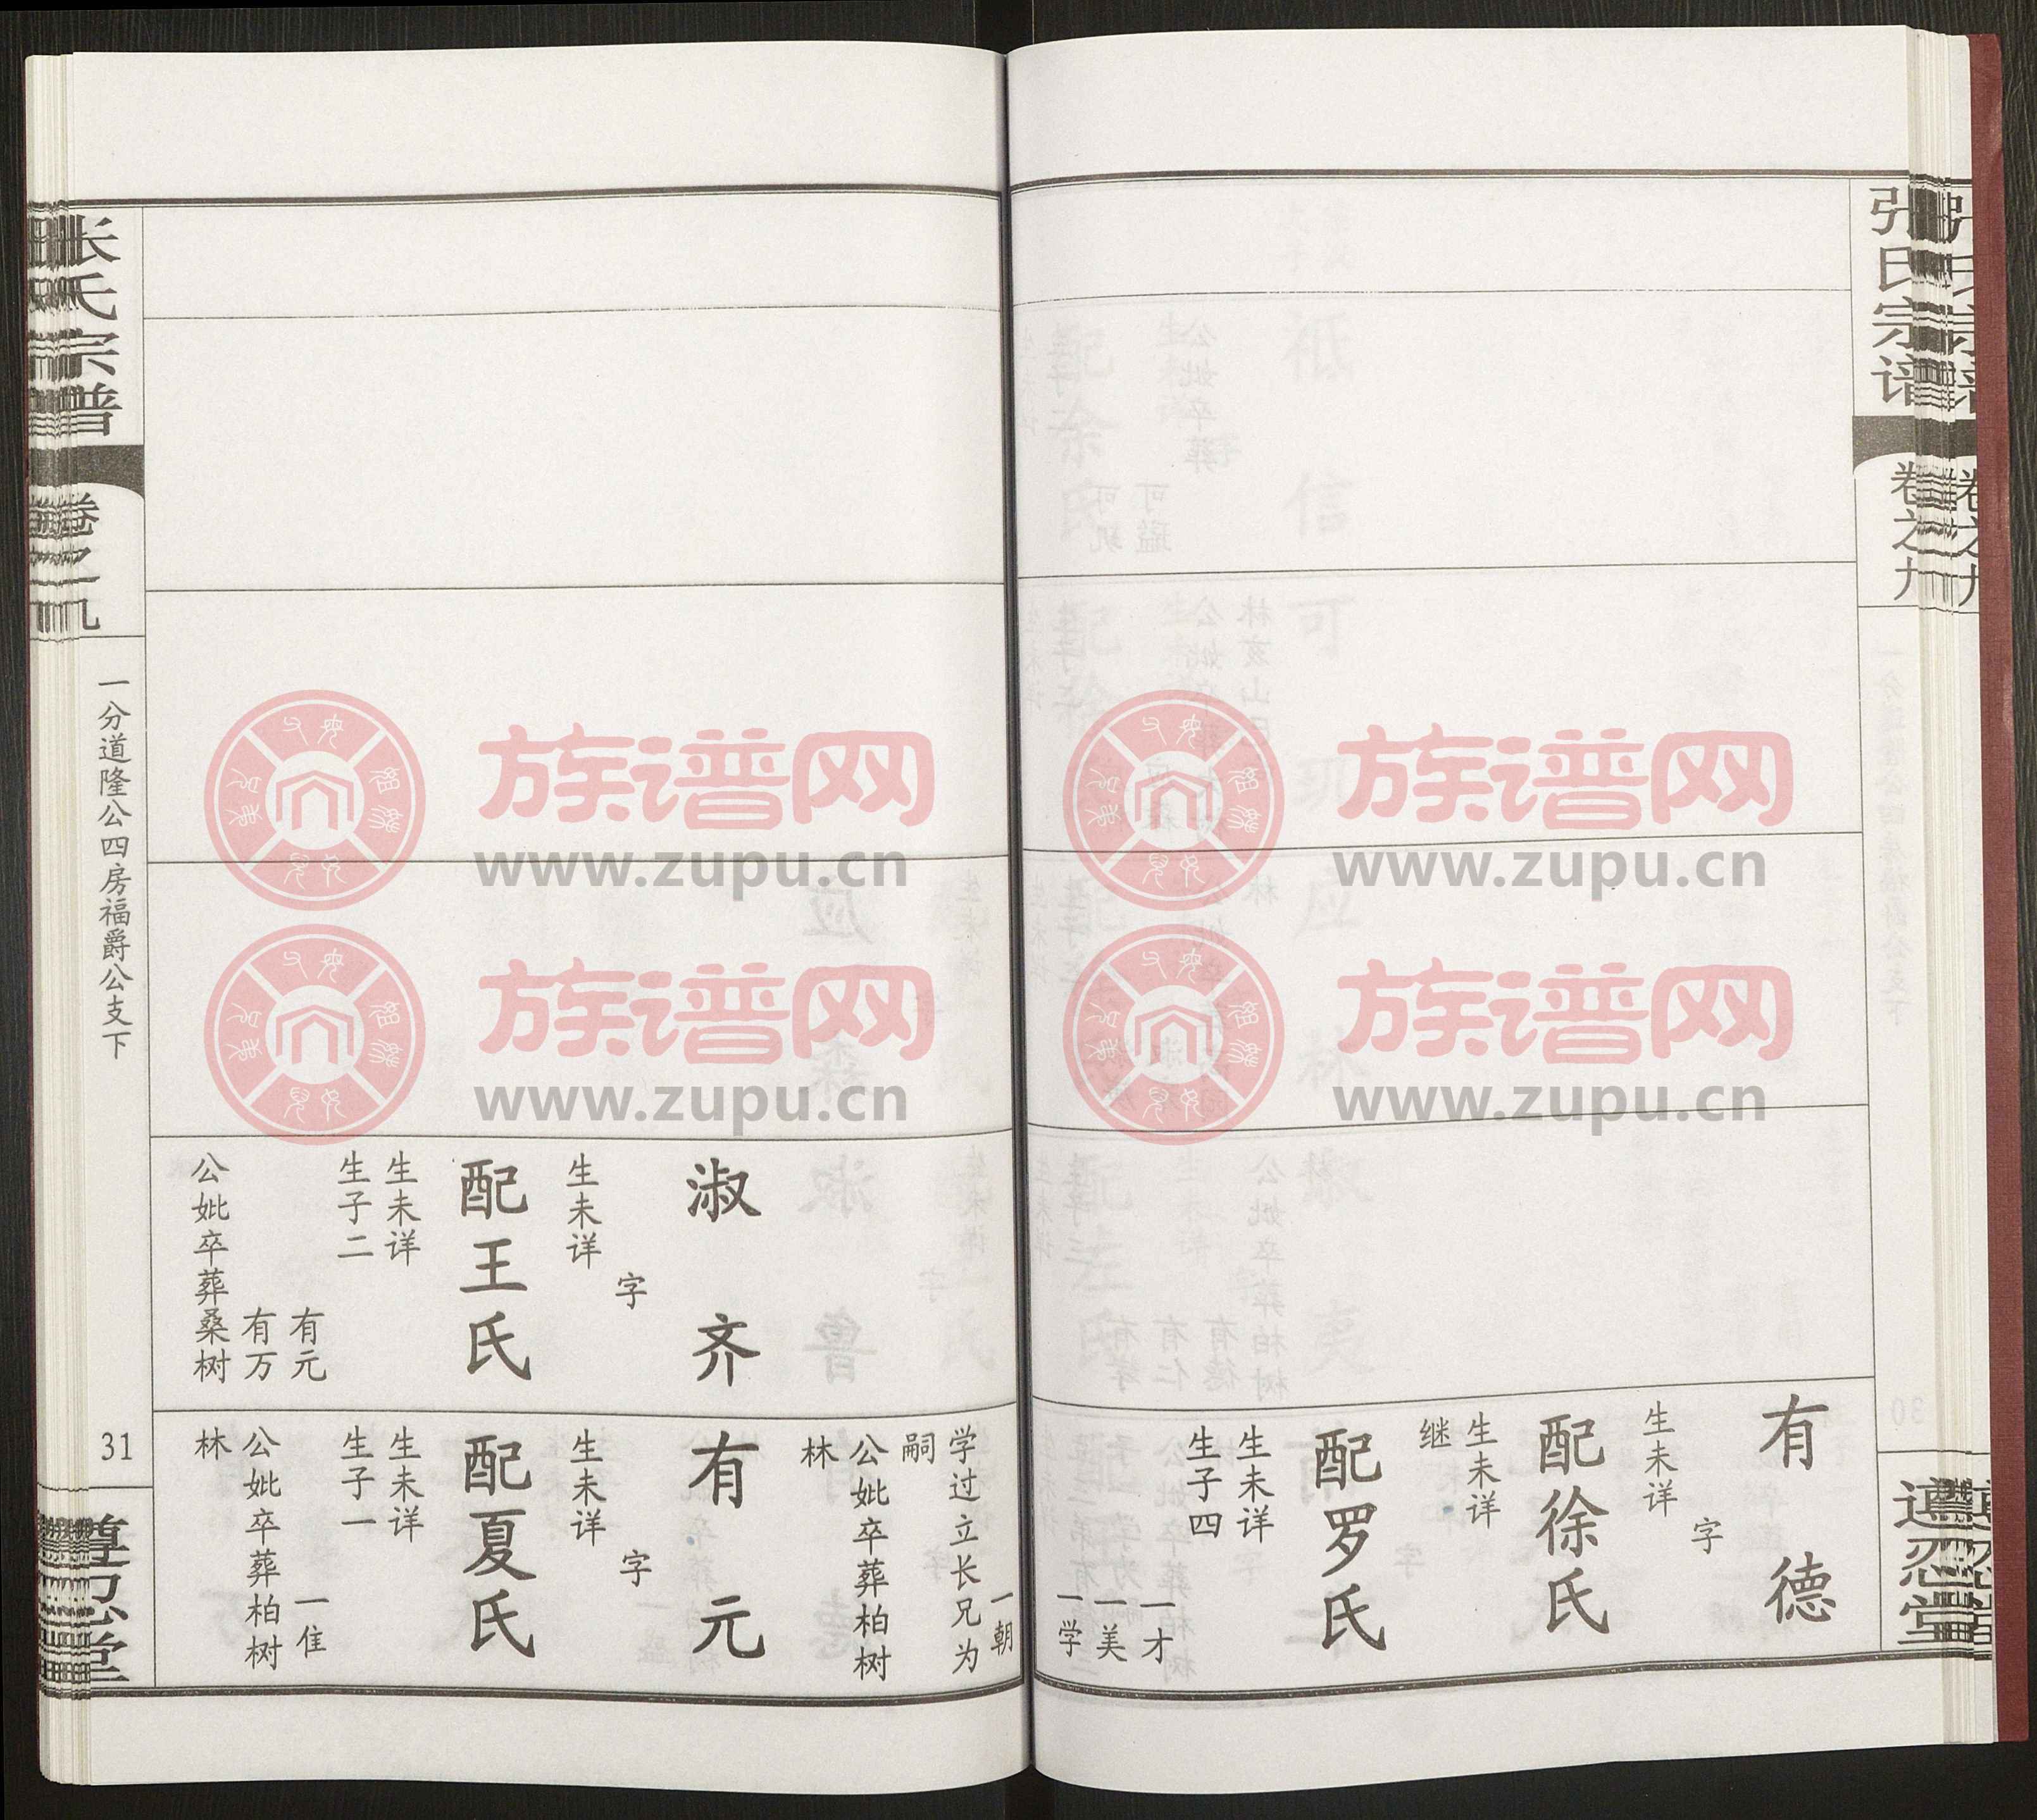 张氏宗谱
卷之九
有德
字
生未详
配徐氏
生未详
继
配罗氏
生未详
生子四
一才
一美
一学
一朝
学过立长兄为
嗣
公妣卒葬柏树
林
淑齐
字
生未详
配王氏
生未详
生子二
有元
有万
公妣卒葬桑树
有元
字
生未详
配夏氏
生未详
生子一
一隹
公妣卒葬柏树
林
张氏宗谱
卷之九
一分道隆公四房福爵公支下
31
族谱网
www.zupu.cn
族谱网
www.zupu.cn
族谱网
www.zupu.cn
族谱网
www.zupu.cn